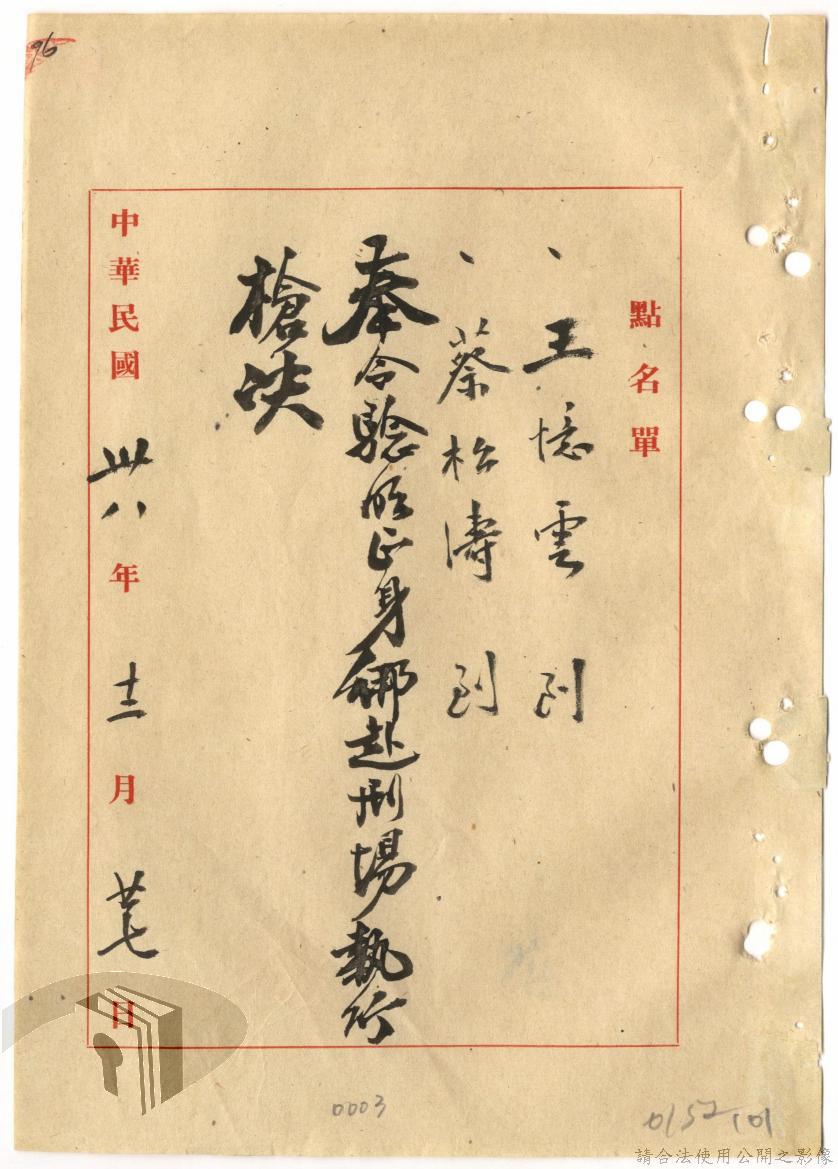 96
點名單
、王憶雲 到
、蔡松濤 到
奉令驗明正身綁赴刑場執行
槍决
中華民國卅八年十二月廿七日
0003
0152 101
請合法使用公開之影像